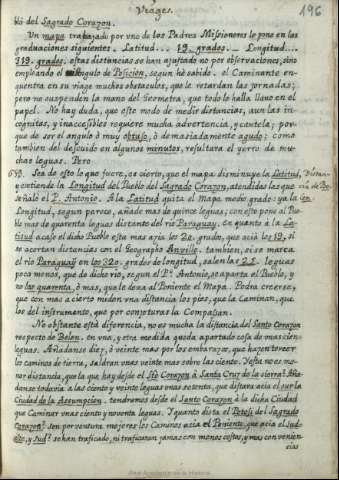 Viages.
196
blo del Sagrado Corazon.
Un mapa trabajado por uno de los Padres Missioneros le pone en las
graduaciones siguientes. Latitud... 19. grados... Longitud...
319. grados. estas distancias se han ajustado no por observaciones, sino
empleando el Angulo de Posicion, segun hè sabido. el Caminante en-
quentra en su viage muchos obstaculos, que le retardan las jornadas;
pero no suspenden la mano del Geometra, que todo lo halla llano en el
papel. No hay duda, que este modo de medir distancias, aun las in-
cognitas, y inaccesibles requiere mucha advertencia, y cautela; por-
que de ser el angulo ò muy obtuso, ò demasiadamente agudo; como
tambien del descuido en algunos minutos, resultara el yerro de mu-
chas leguas. Pero
Sea de esto lo que fuere, es cierto, que el mapa disminuye la Latitud,
y extiende la Longitud del Pueblo del Sagrado Corazon, atendidas las que
señalò el P. Antonio. A la Latitud quita el Mapa medio grado: ya la
Longitud, segun parece, añade mas de quince leguas; con esto pone al Pue-
blo mas de quarenta leguas distante del rio Paraguay. en quanto à la La-
titud acaso el dicho Pueblo esta mas azia los 20. grados, que azia los 19, si
se acortan distancias con el Geographo Anville. tambien, si se marca
el rio Paraguay en los 320. grados de longitud, salen las 22. leguas
poco menos, que de dicho rio, segun el P. Antonio, se aparta el Pueblo, y
no las quarenta, ò mas, que le dexa al Poniente el Mapa. Podra creerse,
que con mas acierto miden una distancia los pies, que la Caminan, que
los del instrumento, que por conjeturas la Compasan.
No obstante esta diferencia, no es mucha la distancia del Santo Corazon
respecto de Belen. en una, y otra medida queda apartado cosa de mas cien-
leguas. Añadanse diez, ò veinte mas por los embarazos, que hazen torcer
los caminos de tierra, saldran unas veinte mas sobre las ciento. Y esta no es me-
nor distancia, que la que hay desde el Sto Corazon à Santa Cruz de la sierra. Aña-
danse todavia a las ciento y veinte leguas unas setenta, que distara azia el sur la
Ciudad de la Assumpcion. tendremos desde el Sto Corazon à la dicha Ciudad
que Caminar unas ciento y noventa leguas. Y quanto dista el Potosi del Sagrado
Corazon? Son por ventura mejores los Caminos azia el Poniente, que azia el Sud-
este, y Sud? se han traficado, ni traficaran jamas con menos costas, y mas convenien
cias